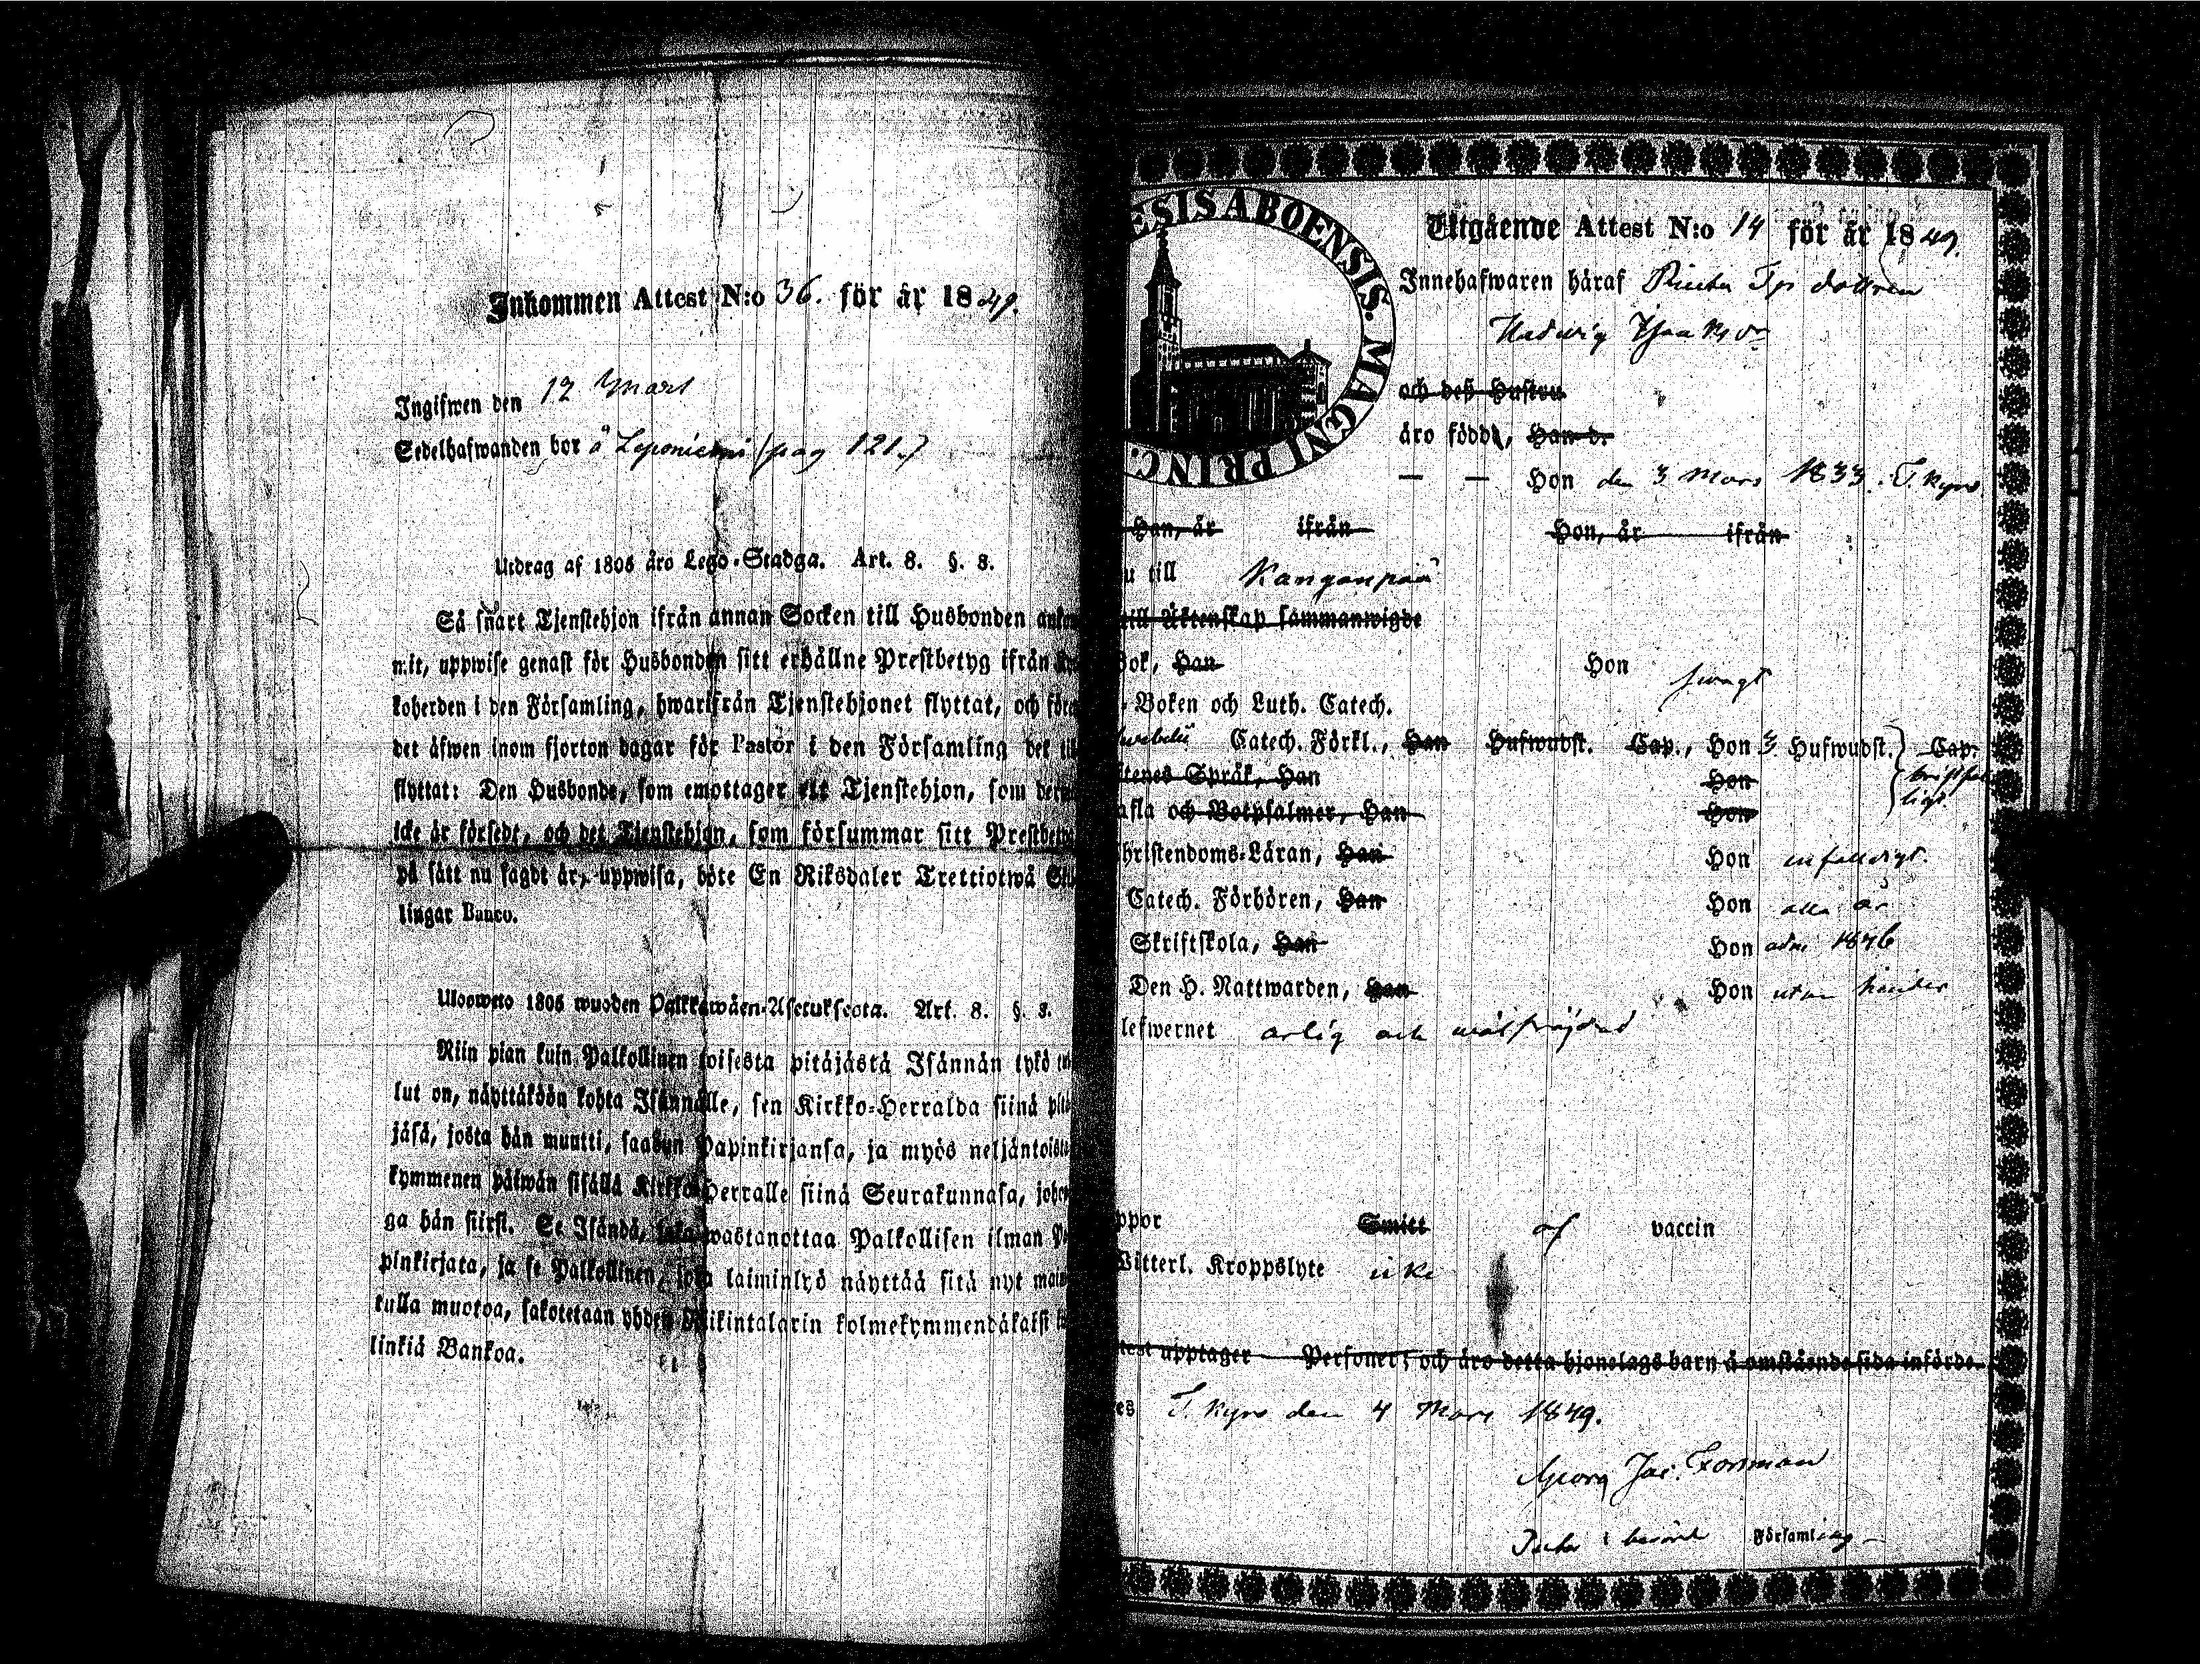 Inkommen Attest N:o 36. för år 1849.
Ingifwen den 12 Mars
Sedelhafwanden bor å Leponiemi (pag 121.)
Utdrag af 1805 års Lego-Stadga. Art. 8. §. 8.
Så snart Tjenstehjon ifrån annan Socken till Husbonden ankom
mit, uppwise genast för Husbonden sitt erhållne Prestbetyg ifrån
koherden i den Församling, hwarifrån Tjenstehjonet flyttat, och före
det äfwen inom fjorton dagar för Pastor i den Församling det till
flyttat: Den Husbonde, som emottager ett Tjenstehjon, som dermed
icke är försedt, och det Tjenstehjon, som försummar sitt Prestbetyg
på sätt nu sagdt är, uppwisa, böte En Riksdaler Trettiotwå Skil
lingar Banco.
Uloswetto 1805 wuoden Palkkawäen-Asetuksesta. Art. 8. §. 8.
Niin pian kuin Palkollinen toisesta pitäjästä Isännän tykö tul
lut on, näyttäköön kohta Isännälle, sen Kirkko-Herralda siinä pitä
jäsä, josta hän muutti, saadun Papinkirjansa, ja myös neljäntoista
kymmenen päiwän sisällä Kirkko-Herralle siinä Seurakunnasa, johon
ga hän siirsi. Se Isändä, joka wastanottaa Palkollisen ilman Pa
pinkirjata, ja se Palkollinen, joka laiminlyö näyttää sitä nyt main
tulla muotoa, sakotetaan yhden Riikintalarin kolmekymmendäkaksi kil
linkiä Bankoa.
ESIS ABOENSIS. MAGNI PRINC.
Utgående Attest N:o 14 för år 1849.
Innehafwaren häraf Piicka Tp dottren
Hedwig Isaksdr
och deß Hustru
äro födde, Han d.
— — Hon den 3 Mars 1833. T.kyro
Han, är ifrån Hon, är ifrån
u till Kangonpää
till Äktenskap sammanwigde
Bok, Han Hon swagt
-Boken och Luth. Catech.
Catech. Förkl., Han Hufwudst. Cap., Hon 3 Hufwudst. Cap.
stenes Språk, Han Hon
afla och Botpsalmer, Han Hon
hristendoms-Läran, Han Hon enfaldigt.
Catech. Förhören, Han Hon alla år
Skriftskola, Han Hon adm 1846
Den H. Nattwarden, Han Hon utan hinder
lefwernet ärlig och wälfräjdad
ppor Smitt af vaccin
Witterl. Kroppslyte icke
test upptager Personer, och äro detta hjonelags barn å omstående sida införde.
es T. kyro den 4 Mars 1849.
Georg Jac. Forsman
Församling